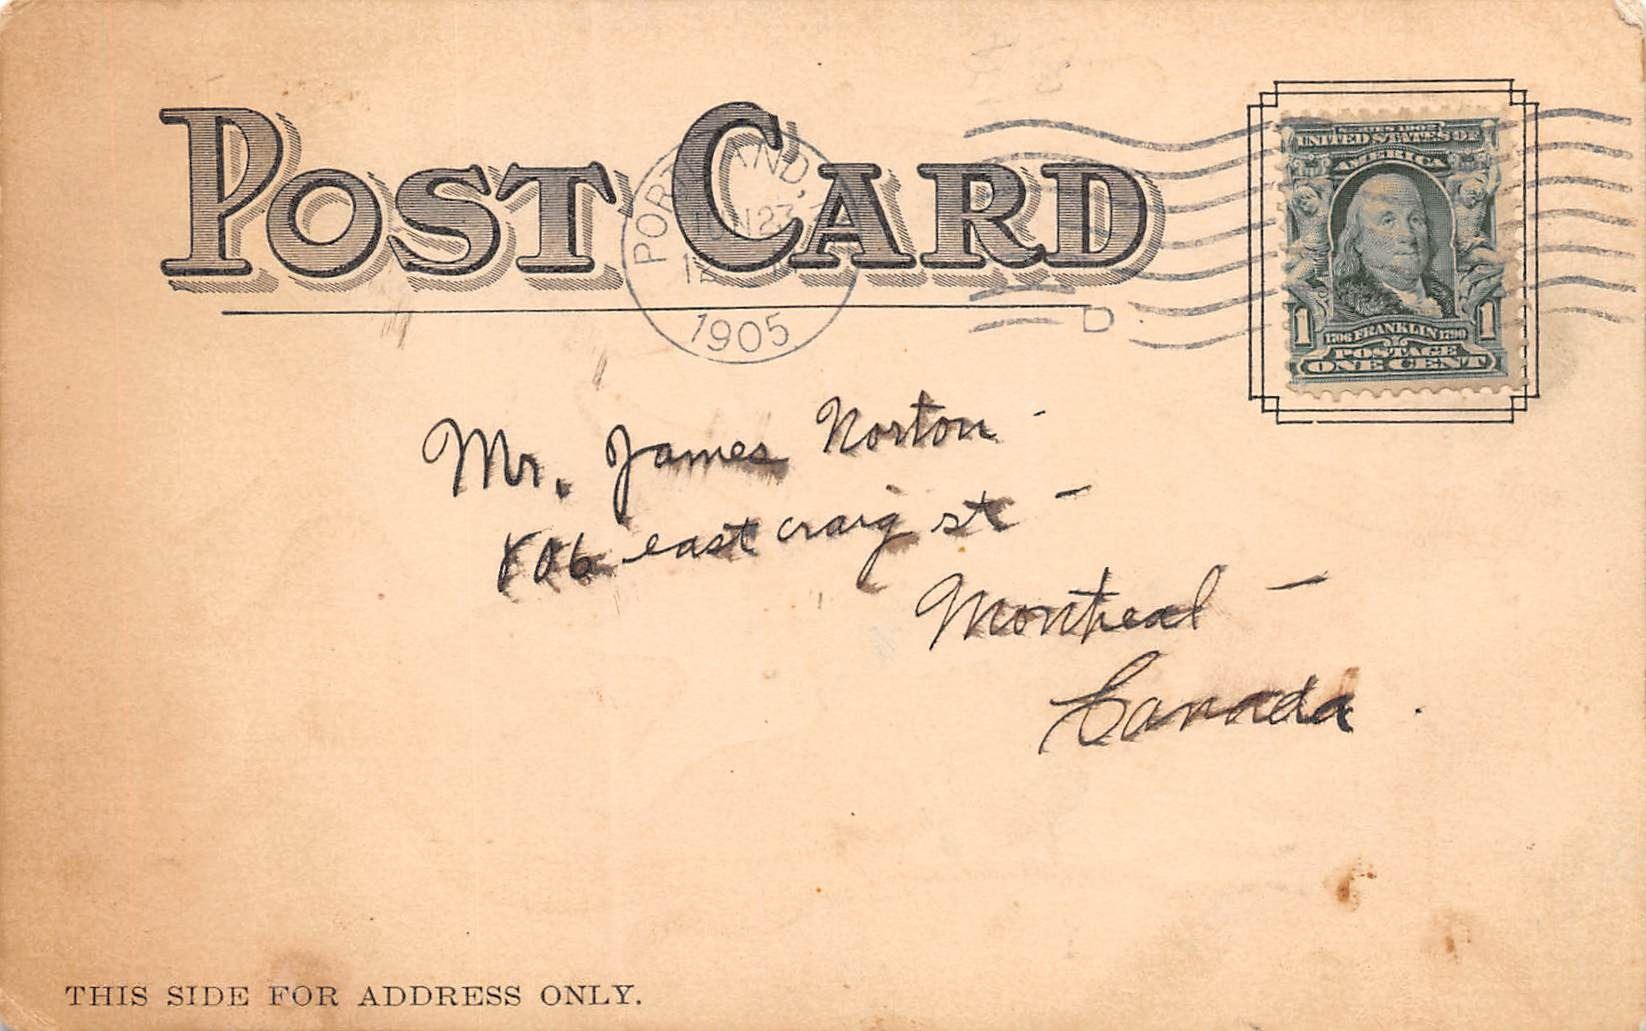 POST CARD
PORTLAND,
JUN 23
12
1905
D
SERIES 1902
UNITED STATES OF
AMERICA
1 1
1706 FRANKLIN 1790
POSTAGE
ONE CENT
Mr. James Norton -
806 east craig st -
Montreal -
Canada .
THIS SIDE FOR ADDRESS ONLY.